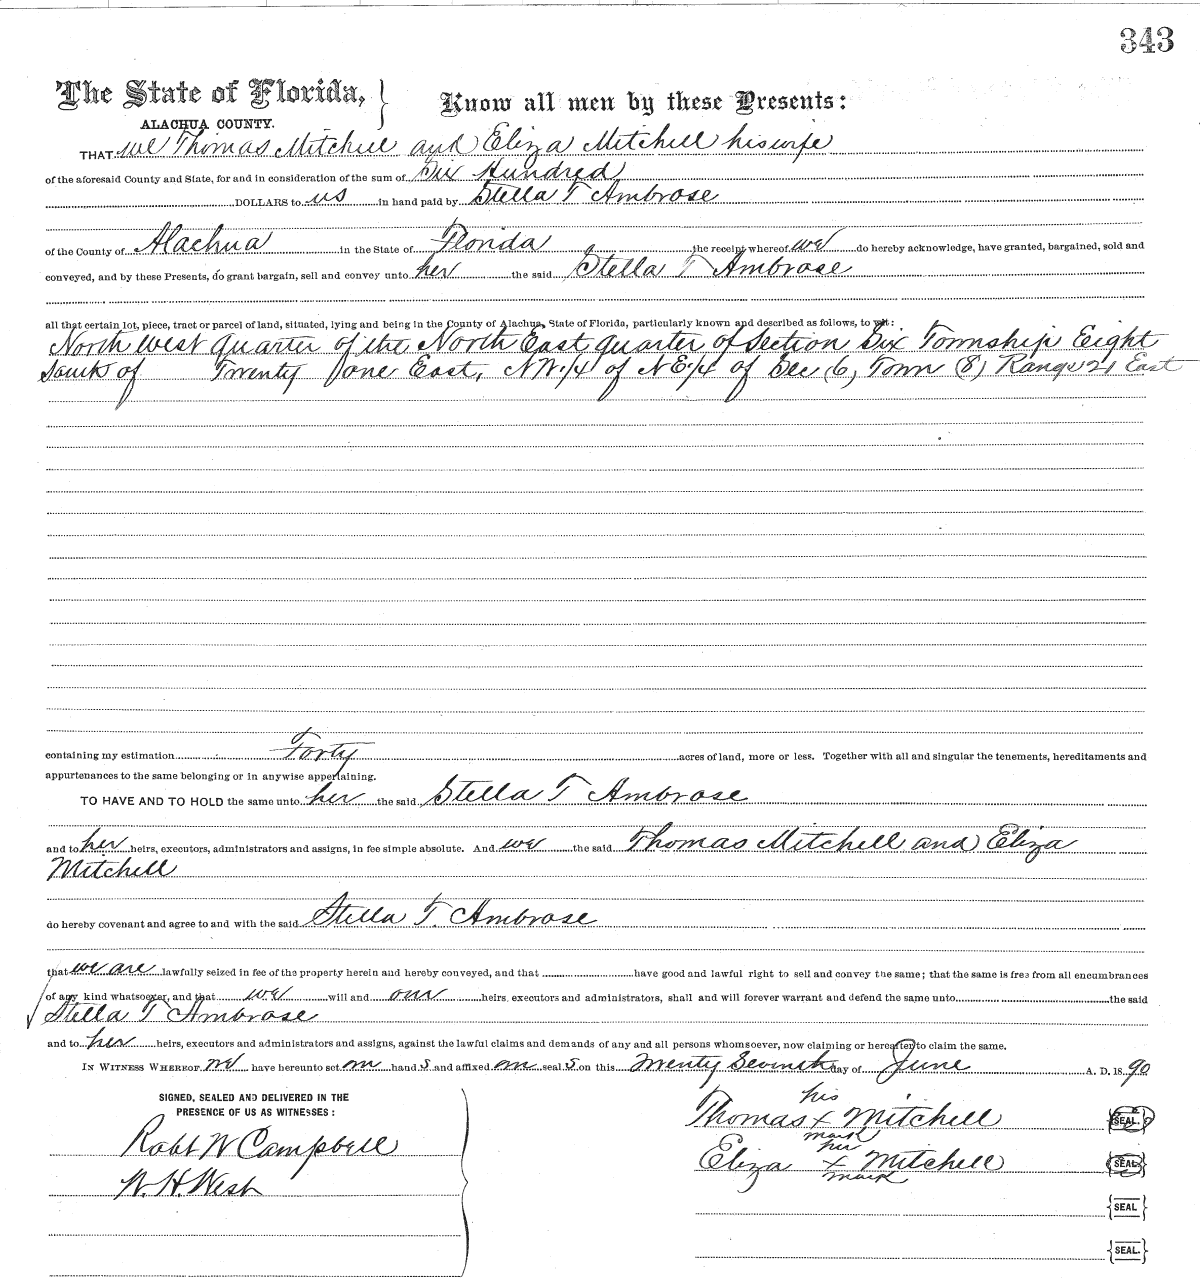 343
The State of Florida, } Know all men by these Presents:
ALACHUA COUNTY.
THAT we Thomas Mitchell and Eliza Mitchell his wife
of the aforesaid County and State, for and in consideration of the sum of Six Hundred
DOLLARS to us in hand paid by Stella T Ambrose
of the County of Alachua in the State of Florida the receipt whereof we do hereby acknowledge, have granted, bargained, sold and
conveyed, and by these Presents, do grant bargain, sell and convey unto her the said Stella T Ambrose
all that certain lot, piece, tract or parcel of land, situated, lying and being in the County of Alachua, State of Florida, particularly known and described as follows, to wit:
North west quarter of the North East quarter of Section Six Township Eight
South of Twenty one East, NW 1/4 of NE 1/4 of Sec (6) Town (8) Range 21 East
containing my estimation Forty acres of land, more or less. Together with all and singular the tenements, hereditaments and
appurtenances to the same belonging or in anywise appertaining.
TO HAVE AND TO HOLD the same unto her the said Stella T Ambrose
and to her heirs, executors, administrators and assigns, in fee simple absolute. And we the said Thomas Mitchell and Eliza
Mitchell
do hereby covenant and agree to and with the said Stella T. Ambrose
that we are lawfully seized in fee of the property herein and hereby conveyed, and that have good and lawful right to sell and convey the same; that the same is free from all encumbrances
of any kind whatsoever, and that we will and our heirs, executors and administrators, shall and will forever warrant and defend the same unto the said
Stella T Ambrose
and to her heirs, executors and administrators and assigns, against the lawful claims and demands of any and all persons whomsoever, now claiming or hereafter to claim the same.
IN WITNESS WHEREOF we have hereunto set our hand s and affixed our seal s on this Twenty Seventh day of June A. D. 18 90
SIGNED, SEALED AND DELIVERED IN THE
PRESENCE OF US AS WITNESSES:
Robt W Campbell
W. H. West
his
Thomas x Mitchell {SEAL.}
mark
her
Eliza x Mitchell {SEAL.}
mark
{SEAL}
{SEAL.}